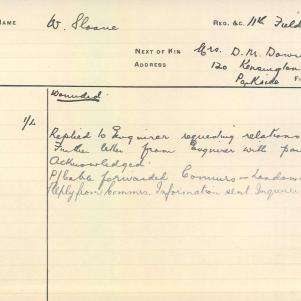 NAME W. Sloane REG. &C. 11th Field
NEXT OF KIN Mrs. D. M. Down
ADDRESS 120 Kensington
Parkside
Wounded.
1/2 Replied to Enquirer requesting relations
Further letter from Enquirer with par
Acknowledged.
P/Cable forwarded Commrs - London
Reply from Commrs. Information sent Inquirer